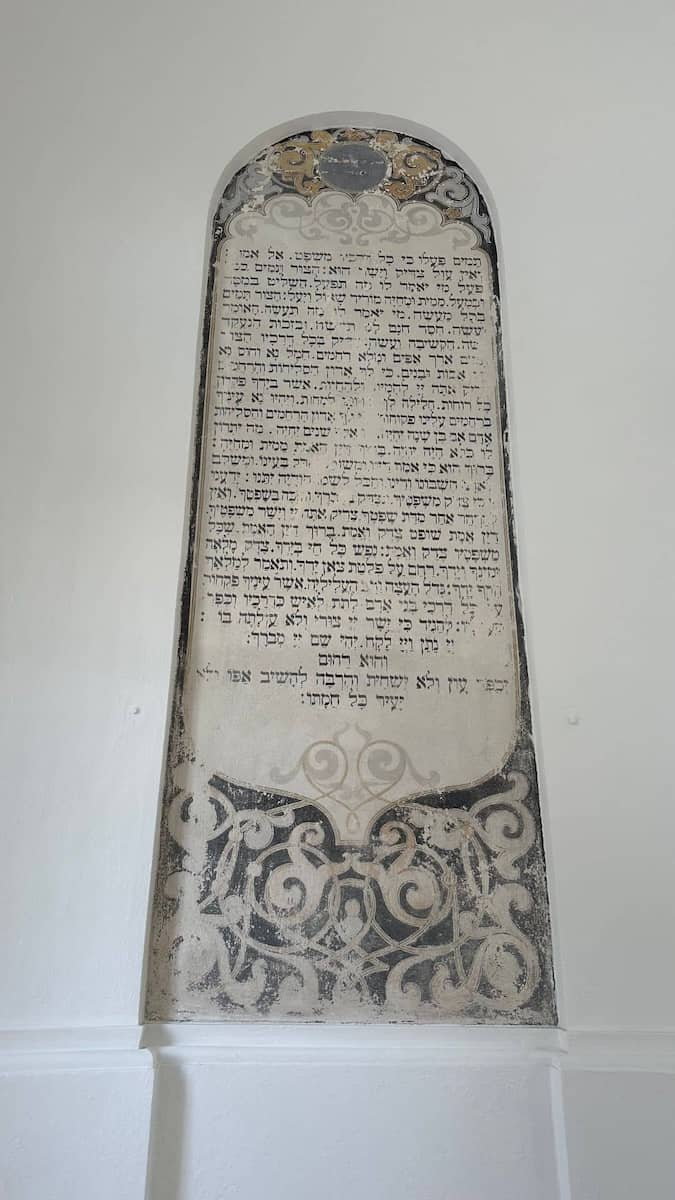 תמים פעלו כי כל דרכיו משפט. אל אמו :
ואין עול צדיק וישר הוא: הצור תמים בכל
פעל מי יאמר לו מה תפעל. השליט במטה
ובמעל. ממית ומחיה מוריד שאול ויעל: הצור תמים
בכל מעשה. מי יאמר לו מה תעשה. האומר
ועשה. חסד חנם לנו תעשה. ובזכות הנעקד
כשה. הקשיבה ועשה: צדיק בכל דרכיו הצור
תמים ארך אפים ומלא רחמים. חמל נא וחוס נא
על אבות ובנים. כי לך אדון הסליחות והרחמים:
צדיק אתה יי להמית ולהחיות. אשר בידך פקדון
כל רוחות. חלילה לך זכרוננו למחות. ויהיו נא עיניך
ברחמים עלינו פקוחות. כי לך אדון הרחמים והסליחות
אדם אם בן שנה יהיה. או אלף שנים יחיה. מה יתרון
לו כלא היה יהיה. ברוך דין האמת ממית ומחיה:
ברוך הוא כי אמת דינו ומשוטט הכל בעינו. ומשלם
לאדם חשבונו ודינו והכל לשמו הודיה יתנו: ידענו
יי כי צדק משפטיך תצדק בדברך ותזכה בשפטך. ואין
להרהר אחר מדת שפטך צדיק אתה יי וישר משפטיך
דין אמת שופט צדק ואמת. ברוך דין האמת. שכל
משפטיו צדק ואמת: נפש כל חי בידך. צדק מלאה
ימינך וידך. רחם על פלטת צאן ידך. ותאמר למלאך
הרף ידך: גדל העצה ורב העליליה. אשר עיניך פקחות
על כל דרכי בני אדם לתת לאיש כדרכיו וכפרי
מעלליו: להגיד כי ישר יי צורי ולא עולתה בו :
יי נתן ויי לקח. יהי שם יי מברך:
והוא רחום
יכפר עון ולא ישחית והרבה להשיב אפו ולא
יעיר כל חמתו: